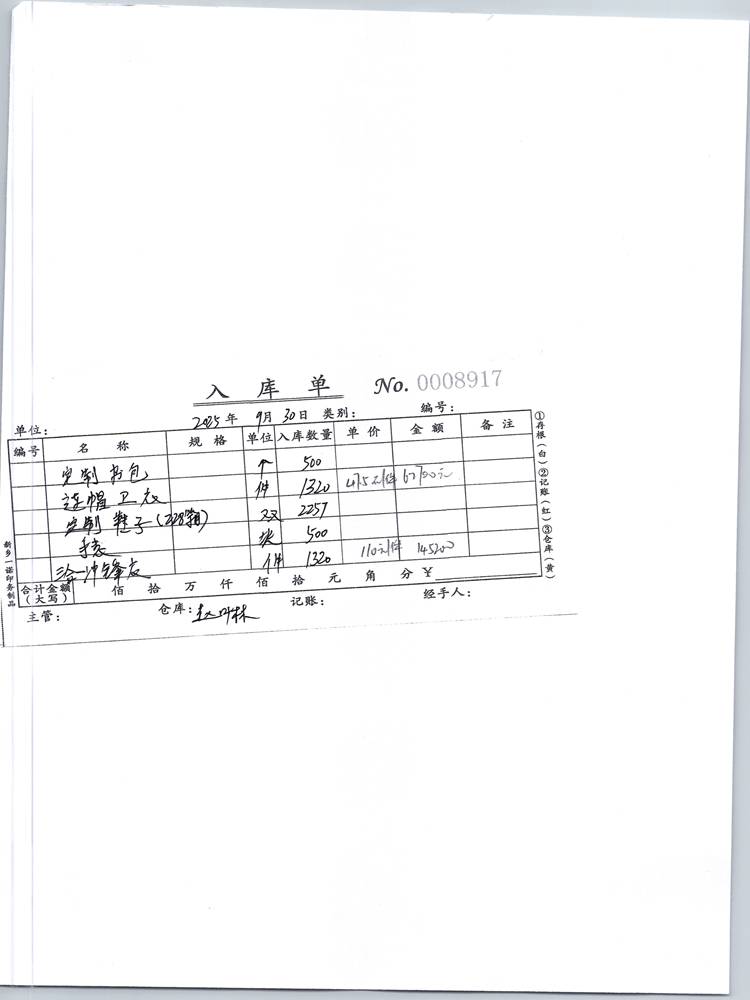 入库单 No. 0008917
单位： 2025年 9月 30日 类别： 编号：
编号 名称 规格 单位 入库数量 单价 金额 备注
定制书包 个 500
连帽卫衣 件 1320 47.5元/件 62700元
定制鞋子(228箱) 双 2257
手表 块 500
三合一冲锋衣 件 1320 110元/件 145200
合计金额（大写） 佰 拾 万 仟 佰 拾 元 角 分 ¥
主管： 仓库： 记账： 经手人：
①存根（白）②记账（红）③仓库（黄）
新乡一诺印务制品